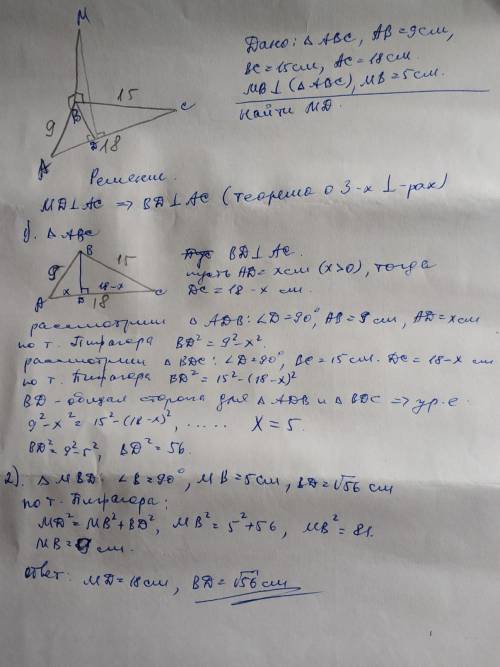 M
9
15
B
C
A
D
18
Дано: △ABC, AB=9см,
BC=15см, AC=18см.
MB⊥(△ABC), MB=5см.
Найти MD.
Решение.
MD⊥AC ⇒ BD⊥AC (теорема о 3-х ⊥-рах)
1). △ABC
B
9
15
A
x
D
18-x
C
18
BD⊥AC.
пусть AD=xсм (x>0), тогда
DC=18-x см.
рассмотрим △ADB: ∠D=90°, AB=9см, AD=xсм
по т. Пифагора BD²=9²-x².
рассмотрим △BDC: ∠D=90°, BC=15см. DC=18-x см
по т. Пифагора BD²=15²-(18-x)²
BD - общая сторона для △ADB и △BDC ⇒ ур-е
9²-x²=15²-(18-x)², ..... X=5.
BD²=9²-5², BD²=56.
2). △MBD: ∠B=90°, MB=5см, BD=√56 см
по т. Пифагора:
MD²=MB²+BD², MB²=5²+56, MB²=81.
MB=9см.
Ответ: MD=18см, BD=√56см